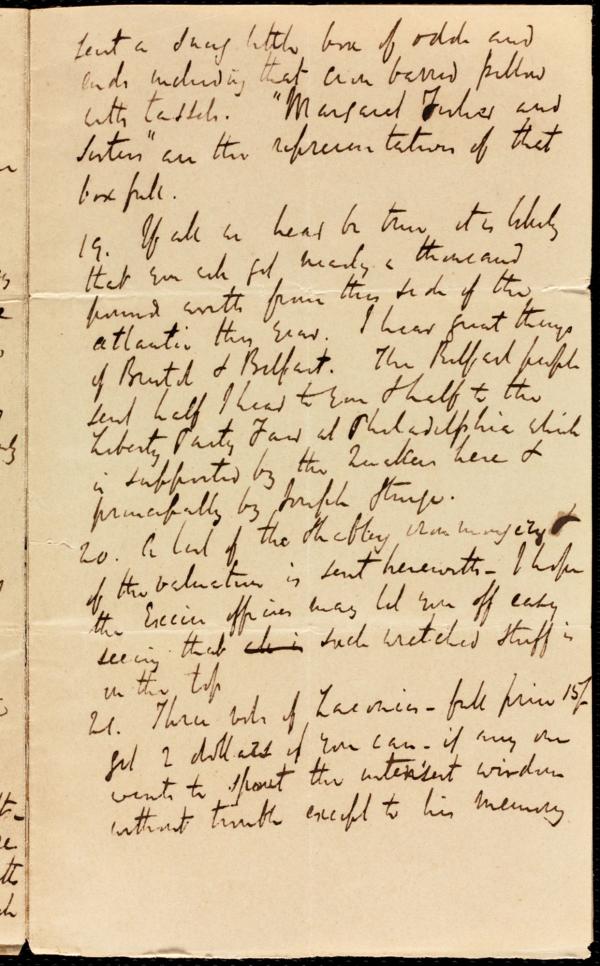 sent a snug little box of odds and
ends including that cross barred pillow
with tassels. "Margaret Fisher and
Sisters" are the representatives of that
box full.
19. If all we hear be true, it is likely
that you will get nearly a thousand
pounds worth from this side of the
atlantic this year. I hear great things
of Bristol & Belfast. The Belfast people
sent half I hear to you & half to the
Liberty Party Fair at Philadelphia which
is supported by the Quakers here &
principally by Joseph Sturge.
20. A list of the Shabbey ironmongery &
of the valuation is sent herewith - I hope
the Excise officers may let you off easy
seeing that such wretched stuff is
in the top
21. Three vols of Laconics - full price 15/-
get 2 dollars if you can - if any one
wants to spout the intensest wisdom
without trouble except to his memory